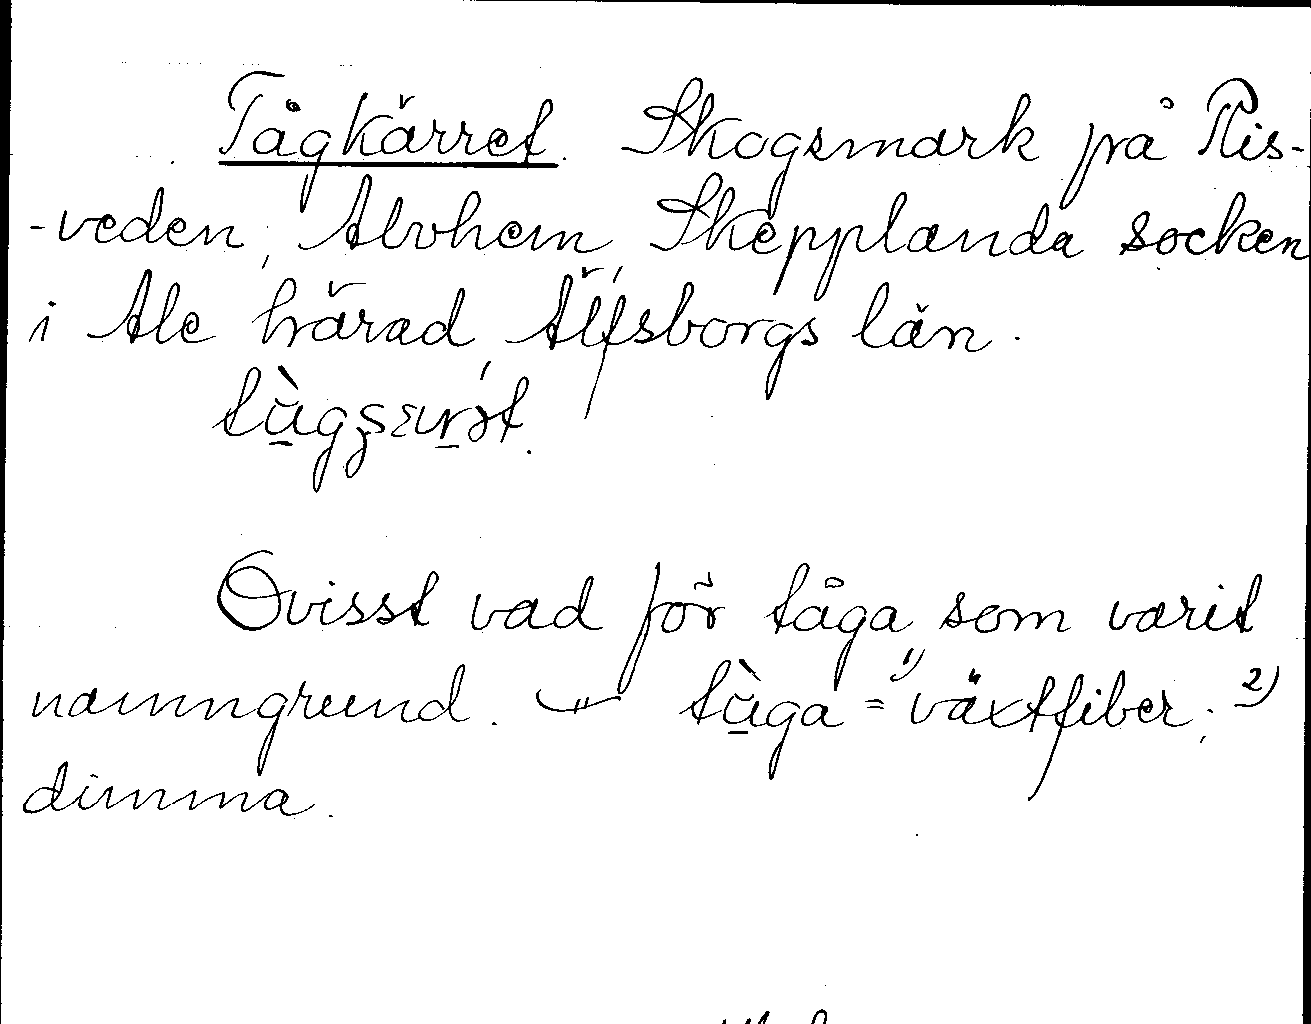 Tågkärret. Skogsmark på Ris-
-veden, Alvhem, Skepplanda socken
i Ale härad, Älfsborgs län.
Ovisst vad för tåga som varit
namngrund. tùga = 1) växtfiber; 2)
dimma.